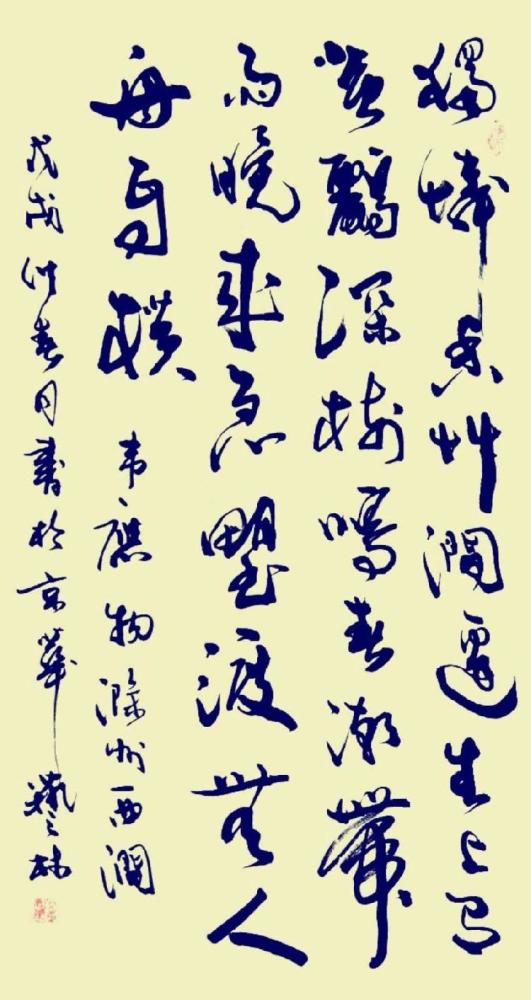 獨憐幽草澗邊生上有
黃鸝深樹鳴春潮帶
雨晚來急野渡無人
舟自橫 韋應物滁州西澗
戊戌仲春月書於京華